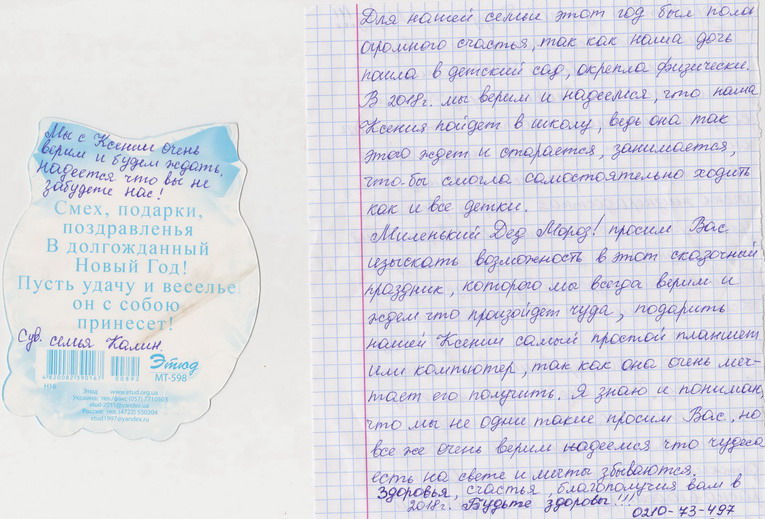 Мы с Ксенией очень
верим и будем ждать,
надеется что вы не
забудете нас!
Смех, подарки,
поздравленья
В долгожданный
Новый Год!
Пусть удачу и веселье
он с собою
принесет!
С ув. семья Калин.
Этюд
4820082590167 00692
МТ-598
Н16
Этюд www.etud.org.ua
Украина: тел./факс (057) 7210303
etud-2011@yandex.ru
Россия: тел. (4722) 550204
etud1997@yandex.ru
Для нашей семьи этот год был полон
огромного счастья, так как наша дочь
пошла в детский сад, окрепла физически.
В 2018г. мы верим и надеемся, что наша
Ксения пойдет в школу, ведь она так
этого ждет и старается, занимается,
что-бы смогла самостоятельно ходить
как и все детки.
Миленький Дед Мороз! просим Вас
изыскать возможность в этот сказочный
праздник, которого мы всегда верим и
ждем что произойдет чуда, подарить
нашей Ксении самый простой планшет
или компьютер, так как она очень меч-
тает его получить. Я знаю и понимаю,
что мы не одни такие просим Вас, но
все же очень верим надеемся что чудеса
есть на свете и мечты сбываются.
Здоровья, счастья, благополучия вам в
2018г. Будьте здоровы!!!
0210-73-497